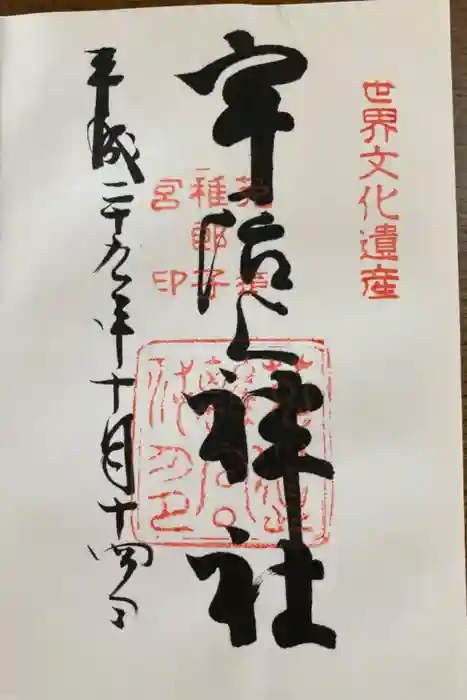 世界文化遺産
宇治上神社
稚郎子
宮印
平成二十九年十月十四日